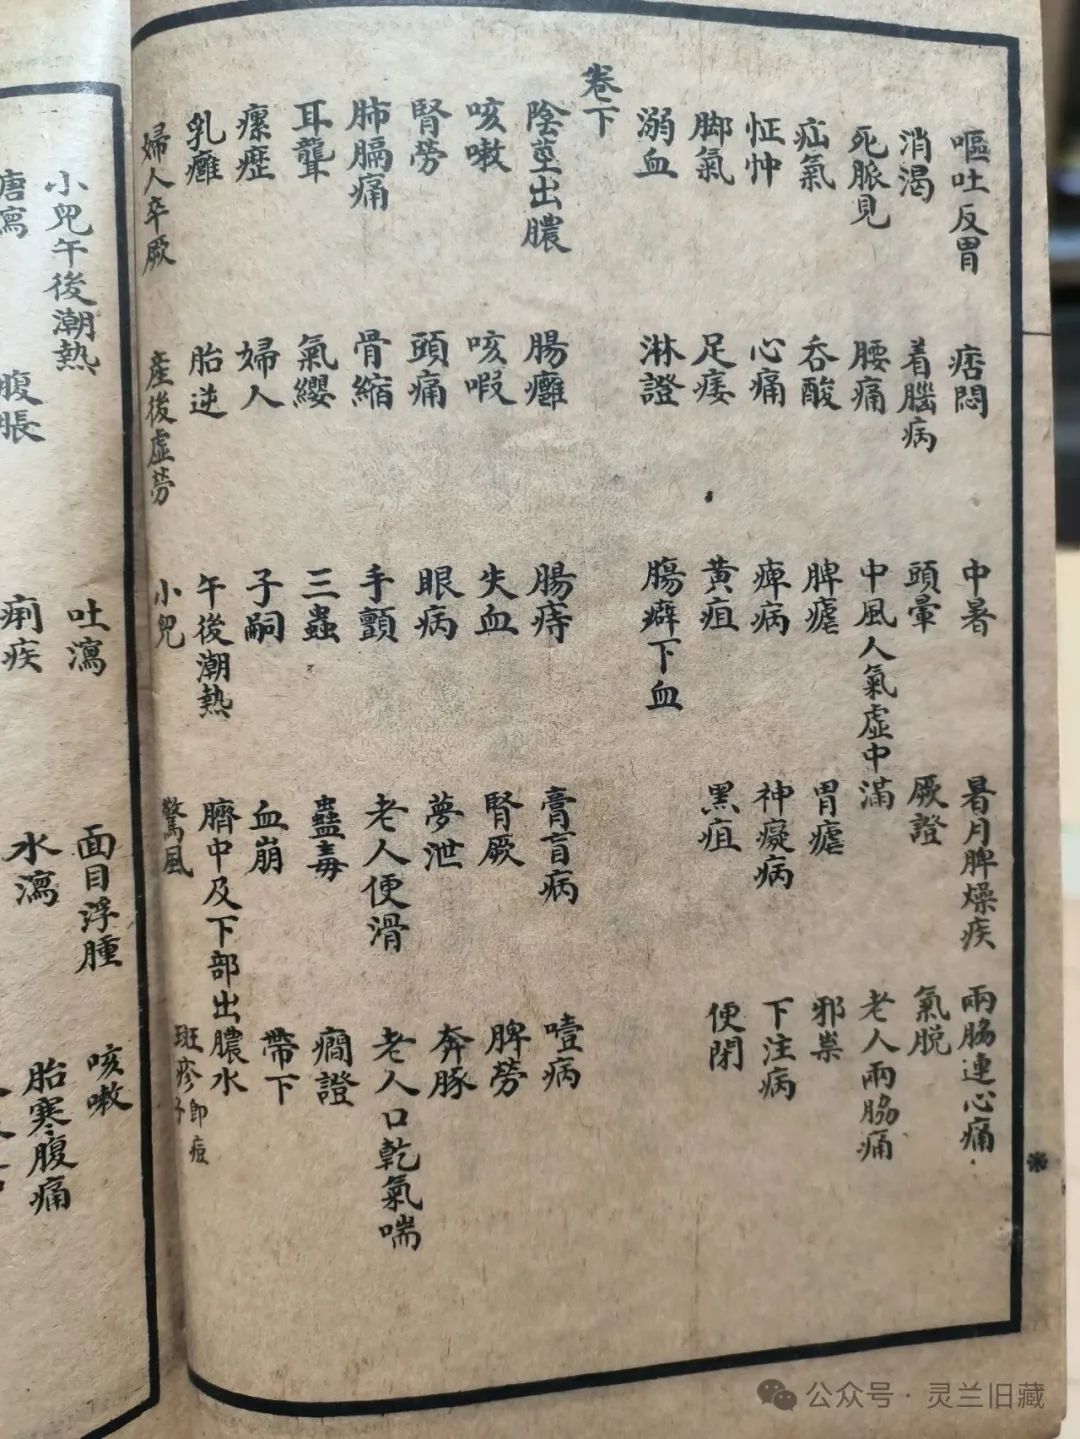 嘔吐反胃 痞悶 中暑 暑月脾燥疾 兩脇連心痛
消渴 着腦病 頭暈 厥證 氣脱
死脈見 腰痛 中風人氣虛中滿 老人兩脇痛
疝氣 吞酸 脾瘧 胃瘧 邪祟
怔忡 心痛 痺病 神癡病 下注病
脚氣 足痿 黃疸 黑疸 便閉
溺血 淋證 腸癖下血
卷下
陰莖出膿 腸癰 腸痔 膏盲病 噎病
咳嗽 咳嘏 失血 腎厥 脾勞
腎勞 頭痛 眼病 夢泄 奔豚
肺膈痛 骨縮 手顫 老人便滑 老人口乾氣喘
耳聾 氣纓 三蟲 蠱毒 癇證
瘰癧 婦人 子嗣 血崩 帶下
乳癰 胎逆 午後潮熱 臍中及下部出膿水
婦人卒厥 産後虛勞 小兒 驚風 斑疹即痘
小兒午後潮熱 吐瀉 面目浮腫 咳嗽
溏瀉 腹脹 痢疾 水瀉 胎寒腹痛
公众号·灵兰旧藏